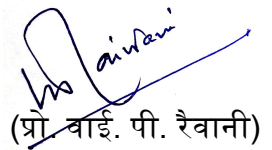 (प्रो. वाई. पी. रैवानी)